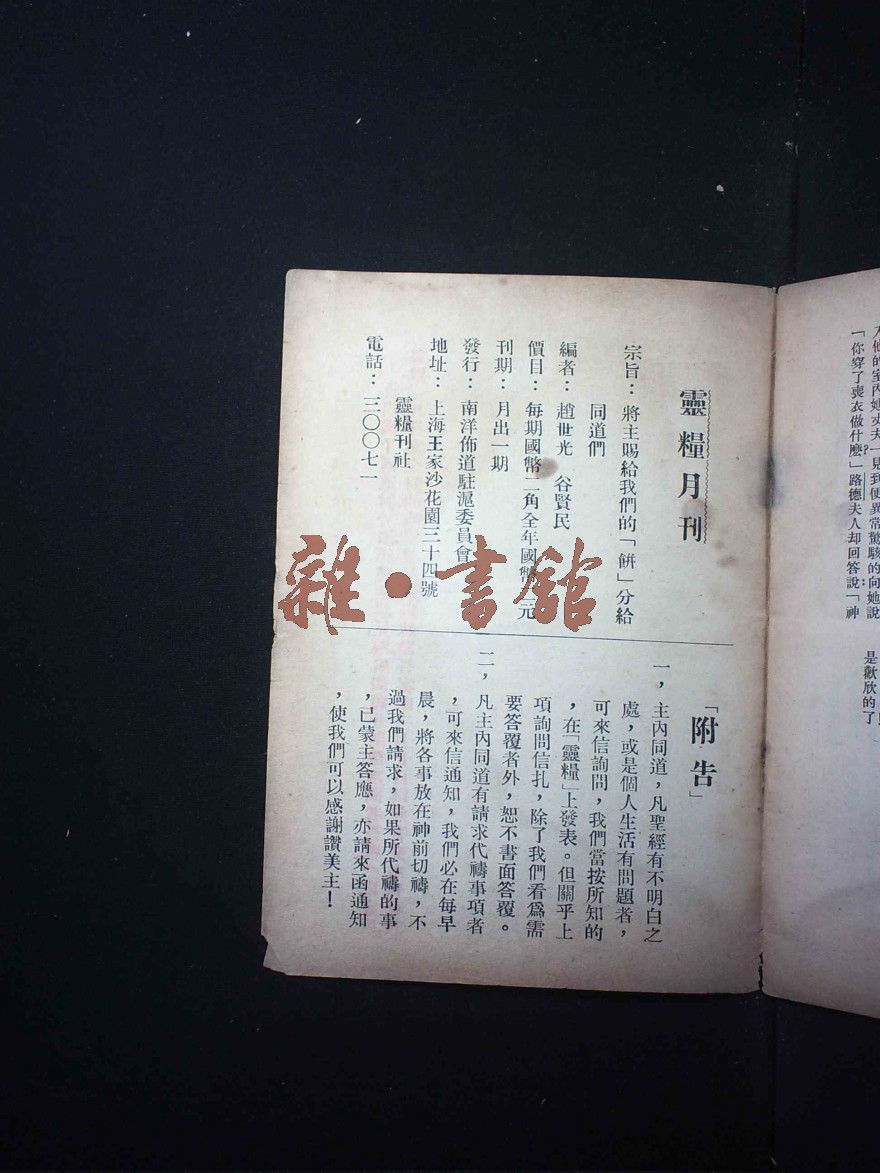 靈糧月刊
宗旨：將主賜給我們的「餅」分給
同道們
編者：趙世光　谷賢民
價目：每期國幣二角全年國幣元
刊期：月出一期
發行：南洋佈道駐滬委員會
地址：上海王家沙花園三十四號
靈糧刊社
電話：三〇〇七一
「附告」
一，主內同道，凡聖經有不明白之
處，或是個人生活有問題者，
可來信詢問，我們當按所知的
，在「靈糧」上發表。但關乎上
項詢問信扎，除了我們看爲需
要答覆者外，恕不書面答覆。
二，凡主內同道有請求代禱事項者
，可來信通知，我們必在每早
晨，將各事放在神前切禱，不
過我們請求，如果所代禱的事
，已蒙主答應，亦請來函通知
，使我們可以感謝讚美主！
雜·書館
的室內她丈夫一見到便異常驚駭的向她說
「你穿了喪衣做什麼？」路德夫人却回答說：「神
是歡欣的了